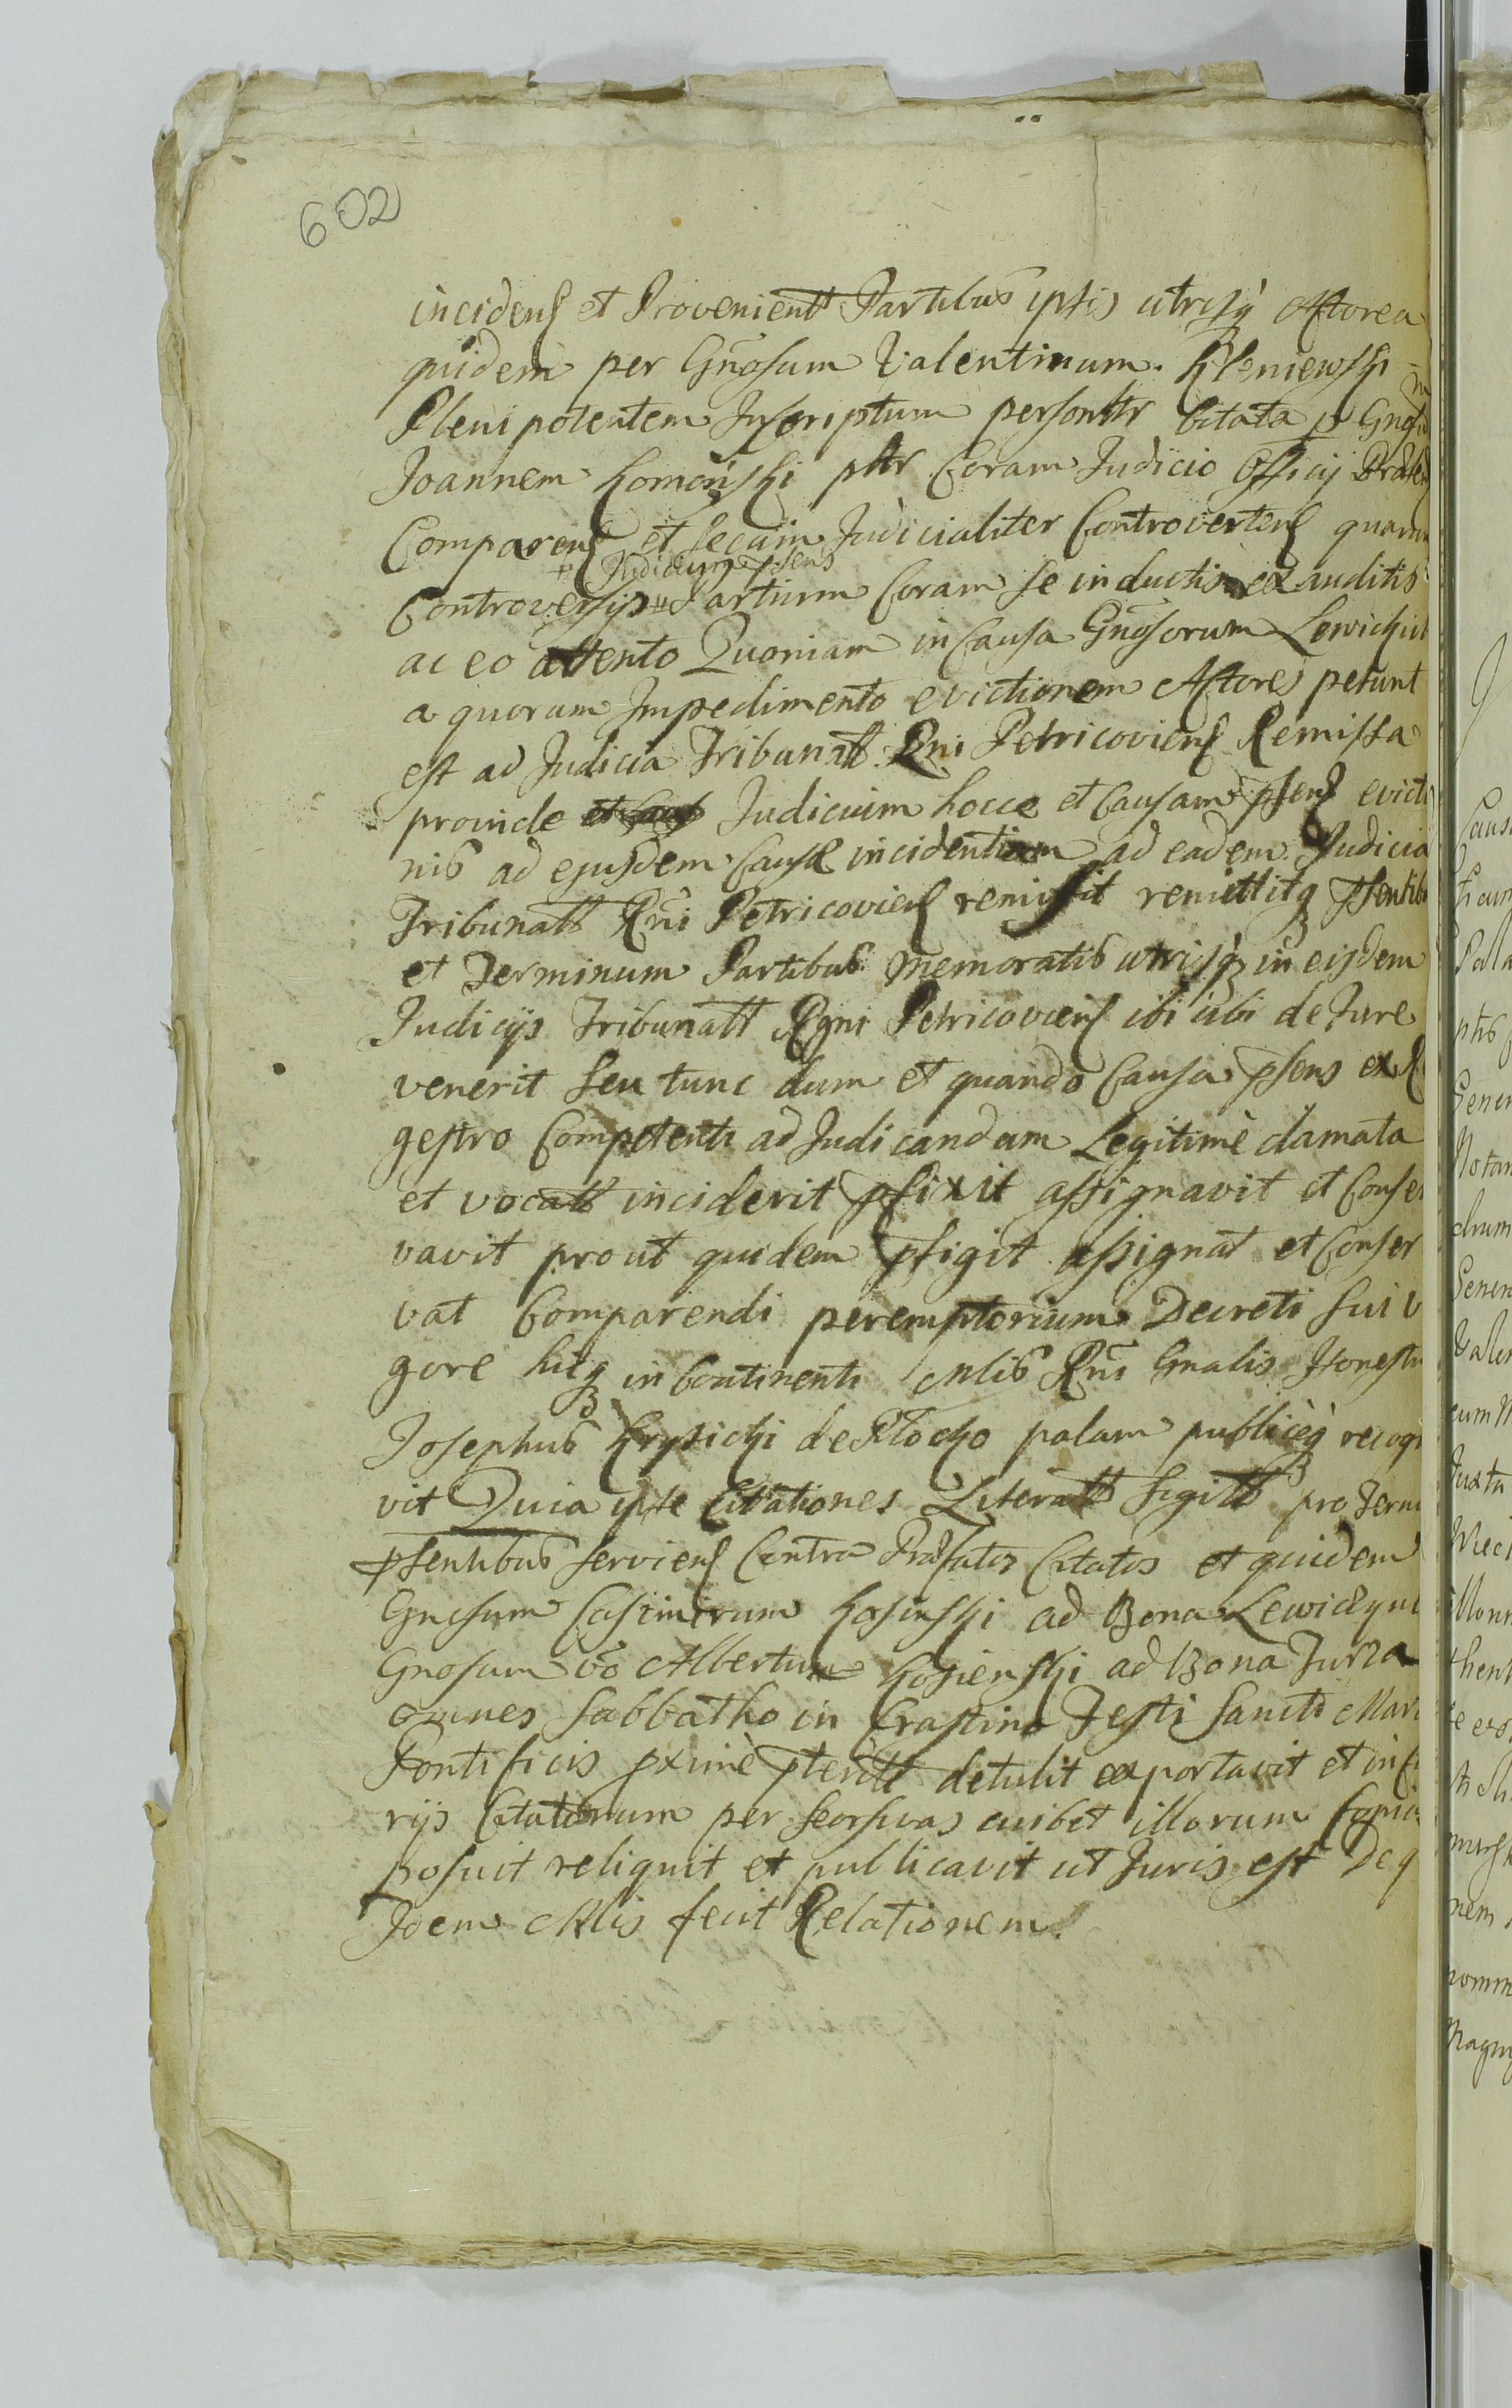 602
incidens et Provenient Partibus ipsis utrisq Actorea
quidem per Gnosum Valentinum Kleniewski
Plenipotentem Inscriptum personltr Citata p Gnosu
Joannem Komoński pltr Coram Judicio Officij
Comparens et secum Judicialiter Controvertens quarum
+ Judicium psens
Controversijs # Partium Coram se inductis exauditis
ac eo attento Quoniam in Causa Gnosorum Lewickich
a quorum Impedimento evictionem Actores petunt
est ad Judicia Tribunatt Rni Petricoviens Remissa
proinde Judicium hocce et Causam psens evictio
nis ad ejusdem Causæ incidentiam ad eadem Judicia
Tribunatt Rni Petricoviens remisit remittitq psentibs
et Terminum Partibus memoratis utrisq in eisdem
Judicijs Tribunatt Rgni Petricoviens ibi ubi de Jure
venerit seu tunc dum et quando Causa psens ex Re
gestro Competenti ad Judicandum Legitimè clamata
et vocatt inciderit pfixit assignavit et Conser
vavit prout quidem pfigit assignat et Conser
vat Comparendi peremptorium Decreti sui v
gore huicq in Continenti Mlis Rni Gnalis Honestu
Josephus Krysicki de Plocko palam publiceq recog
vit Quia ipse Citationes Literatt Sigitt pro Term
psentibus serviens Contra Præfatos Citatos et quidem
Gnosum Casimirum Kosinski ad Bona
Gnosum vo Albertum Kosienski ad Bona Turza
omnes Sabbatho in Crastino Festi Sancti Mar
Pontificis pximè pteritt detulit exportavit et in
rijs Citatorum per seorsivas cuibet illorum Copias
posuit reliquit et publicavit ut Juris est De q
Idem Mlis fecit Relationem.